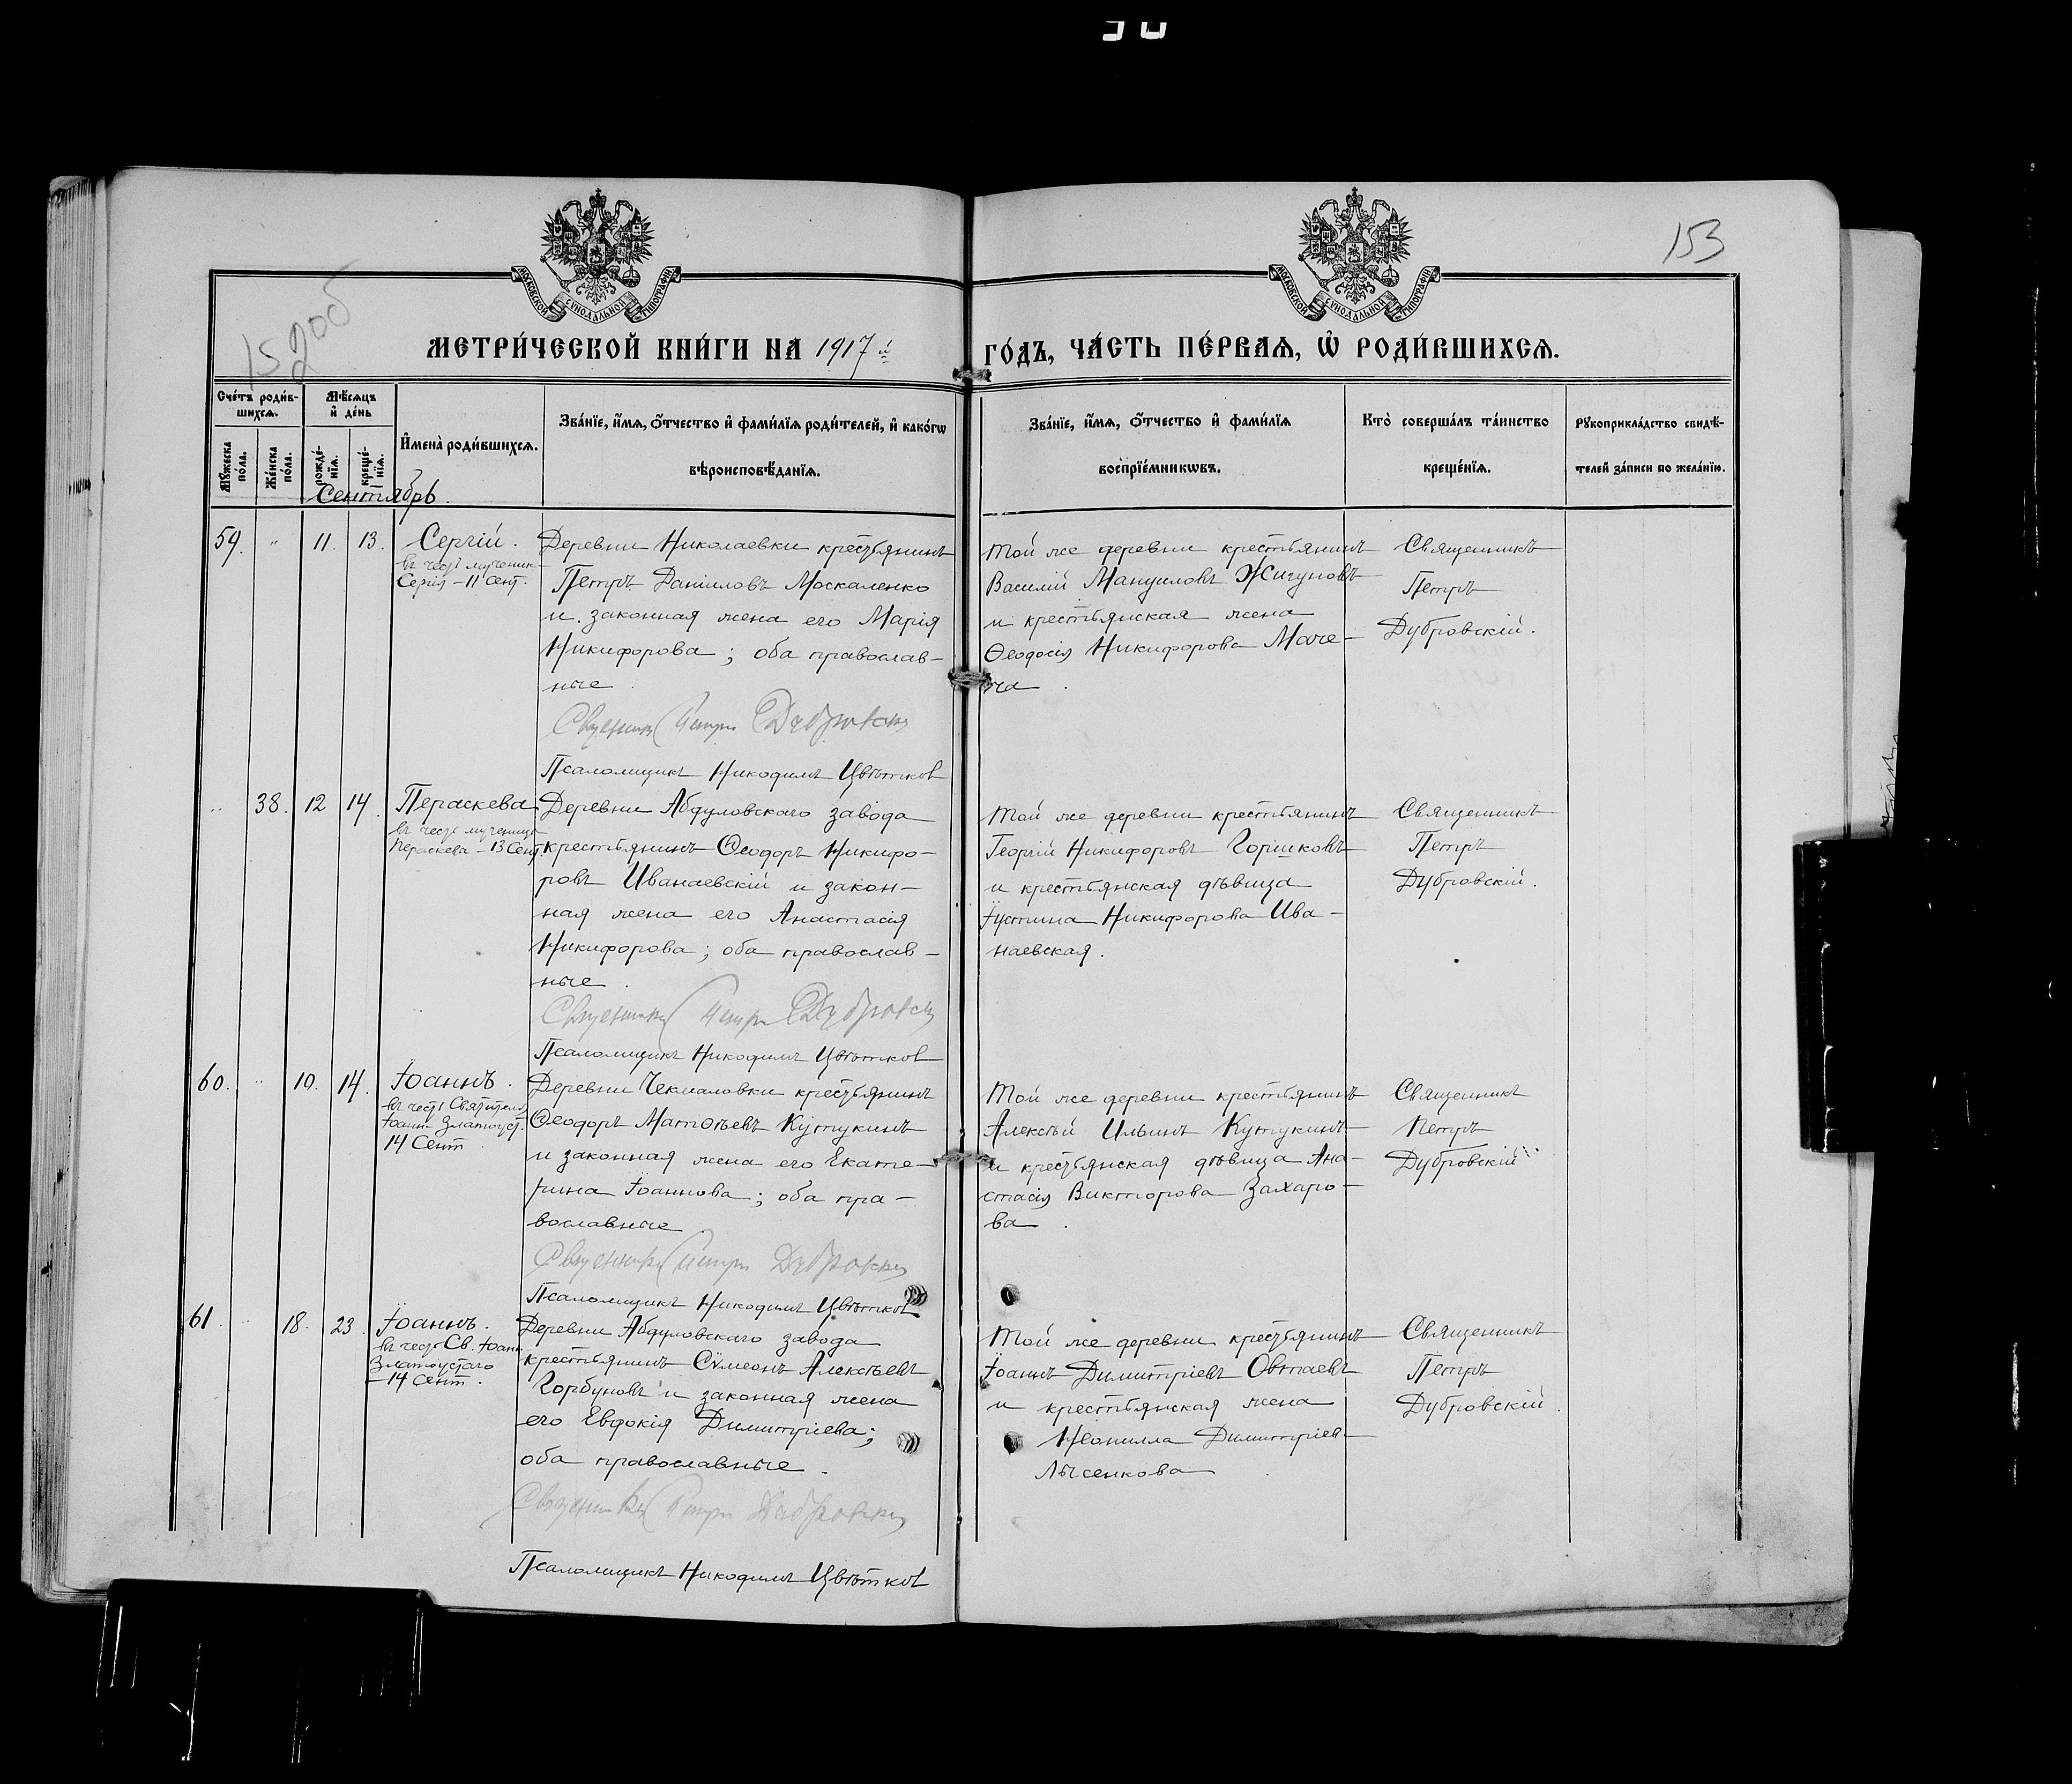 153
152об
МОСКОВСКОЙ СѴНОДАЛЬНОЙ ТИПОГРАФІИ
МОСКОВСКОЙ СѴНОДАЛЬНОЙ ТИПОГРАФІИ
МЕТРИ́ЧЕСКОЙ КНИ́ГИ НА 1917 й
ГО́ДЪ, ЧА́СТЬ ПЕ́РВАѦ, Ѡ҆ РОДИ́ВШИХСѦ.
Сче́тъ роди́в-
шихсѧ.
Мѣ́сѧцъ
и҆ де́нь
Мꙋ́жеска
по́ла.
Же́нска
по́ла.
рожде́-
нїѧ.
креще́-
нїѧ.
И҆мена̀ роди́вшихсѧ.
Зва́нїе, и҆́мѧ, ѻ҆́тчество и҆ фами́лїѧ роди́телей, и҆ како́гѡ
вѣроисповѣ́данїѧ.
Зва́нїе, и҆́мѧ, ѻ҆́тчество и҆ фами́лїѧ
воспрїе́мникѡвъ.
Кто̀ соверша́лъ та́инство
креще́нїѧ.
Рꙋкоприкла́дство свидѣ́-
телей за́писи по жела́нїю.
Сентябрь.
59. " 11. 13. Сергій.
въ честь мученик-
Сергія - 11 Сент.
Деревни Николаевки крестьянинъ
Петръ Даніиловъ Москаленко
и законная жена его Марія
Никифорова; оба православ-
ные.
Священникъ Петръ Дубровскій
Псаломщикъ Никодимъ Цвѣтков
Той же деревни крестьянинъ
Василій Мануиловъ Жигуновъ
и крестьянская жена
Ѳеодосія Никифорова Маче-
ча.
Священникъ
Петръ
Дубровскій.
" 38. 12 14. Пераскева
въ честь мученицы
Пераскевы - 13 Сент.
Деревни Абдуловскаго завода
крестьянинъ Ѳеодоръ Никифо-
ровъ Иванаевскій и закон-
ная жена его Анастасія
Никифорова; оба православ-
ные.
Священникъ Петръ Дубровскій
Псаломщикъ Никодимъ Цвѣтков
Той же деревни крестьянинъ
Георгій Никифоровъ Горшковъ
и крестьянская дѣвица
Іустина Никифорова Ива-
наевская.
Священникъ
Петръ
Дубровскій.
60. " 10. 14. Іоаннъ.
въ честь Святителя
Іоанна Златоуст.
14 Сент
Деревни Чекмаловки крестьянинъ
Ѳеодоръ Матѳѣевъ Кутукинъ
и законная жена его Екате-
рина Іоаннова; оба пра-
вославные.
Священникъ Петръ Дубровскій
Псаломщикъ Никодимъ Цвѣтков
Той же деревни крестьянинъ
Алексѣй Ильинъ Кутукинъ
и крестьянская дѣвица Ана-
стасія Викторова Захаро-
ва.
Священникъ
Петръ
Дубровскій
61. " 18. 23. Іоаннъ.
въ честь Св. Іоан.
Златоустаго
- 14 Сент.
Деревни Абдуловскаго завода
крестьянинъ Сѵмеонъ Алексѣевъ
Горбуновъ и законная жена
его Евдокія Димитріева;
оба православные.
Священникъ Петръ Дубровскій
Псаломщикъ Никодимъ Цвѣтков
Той же деревни крестьянинъ
Іоаннъ Димитріевъ Овтаевъ
и крестьянская жена
Неонилла Димитріев-
Лысенкова
Священникъ
Петръ
Дубровскій.